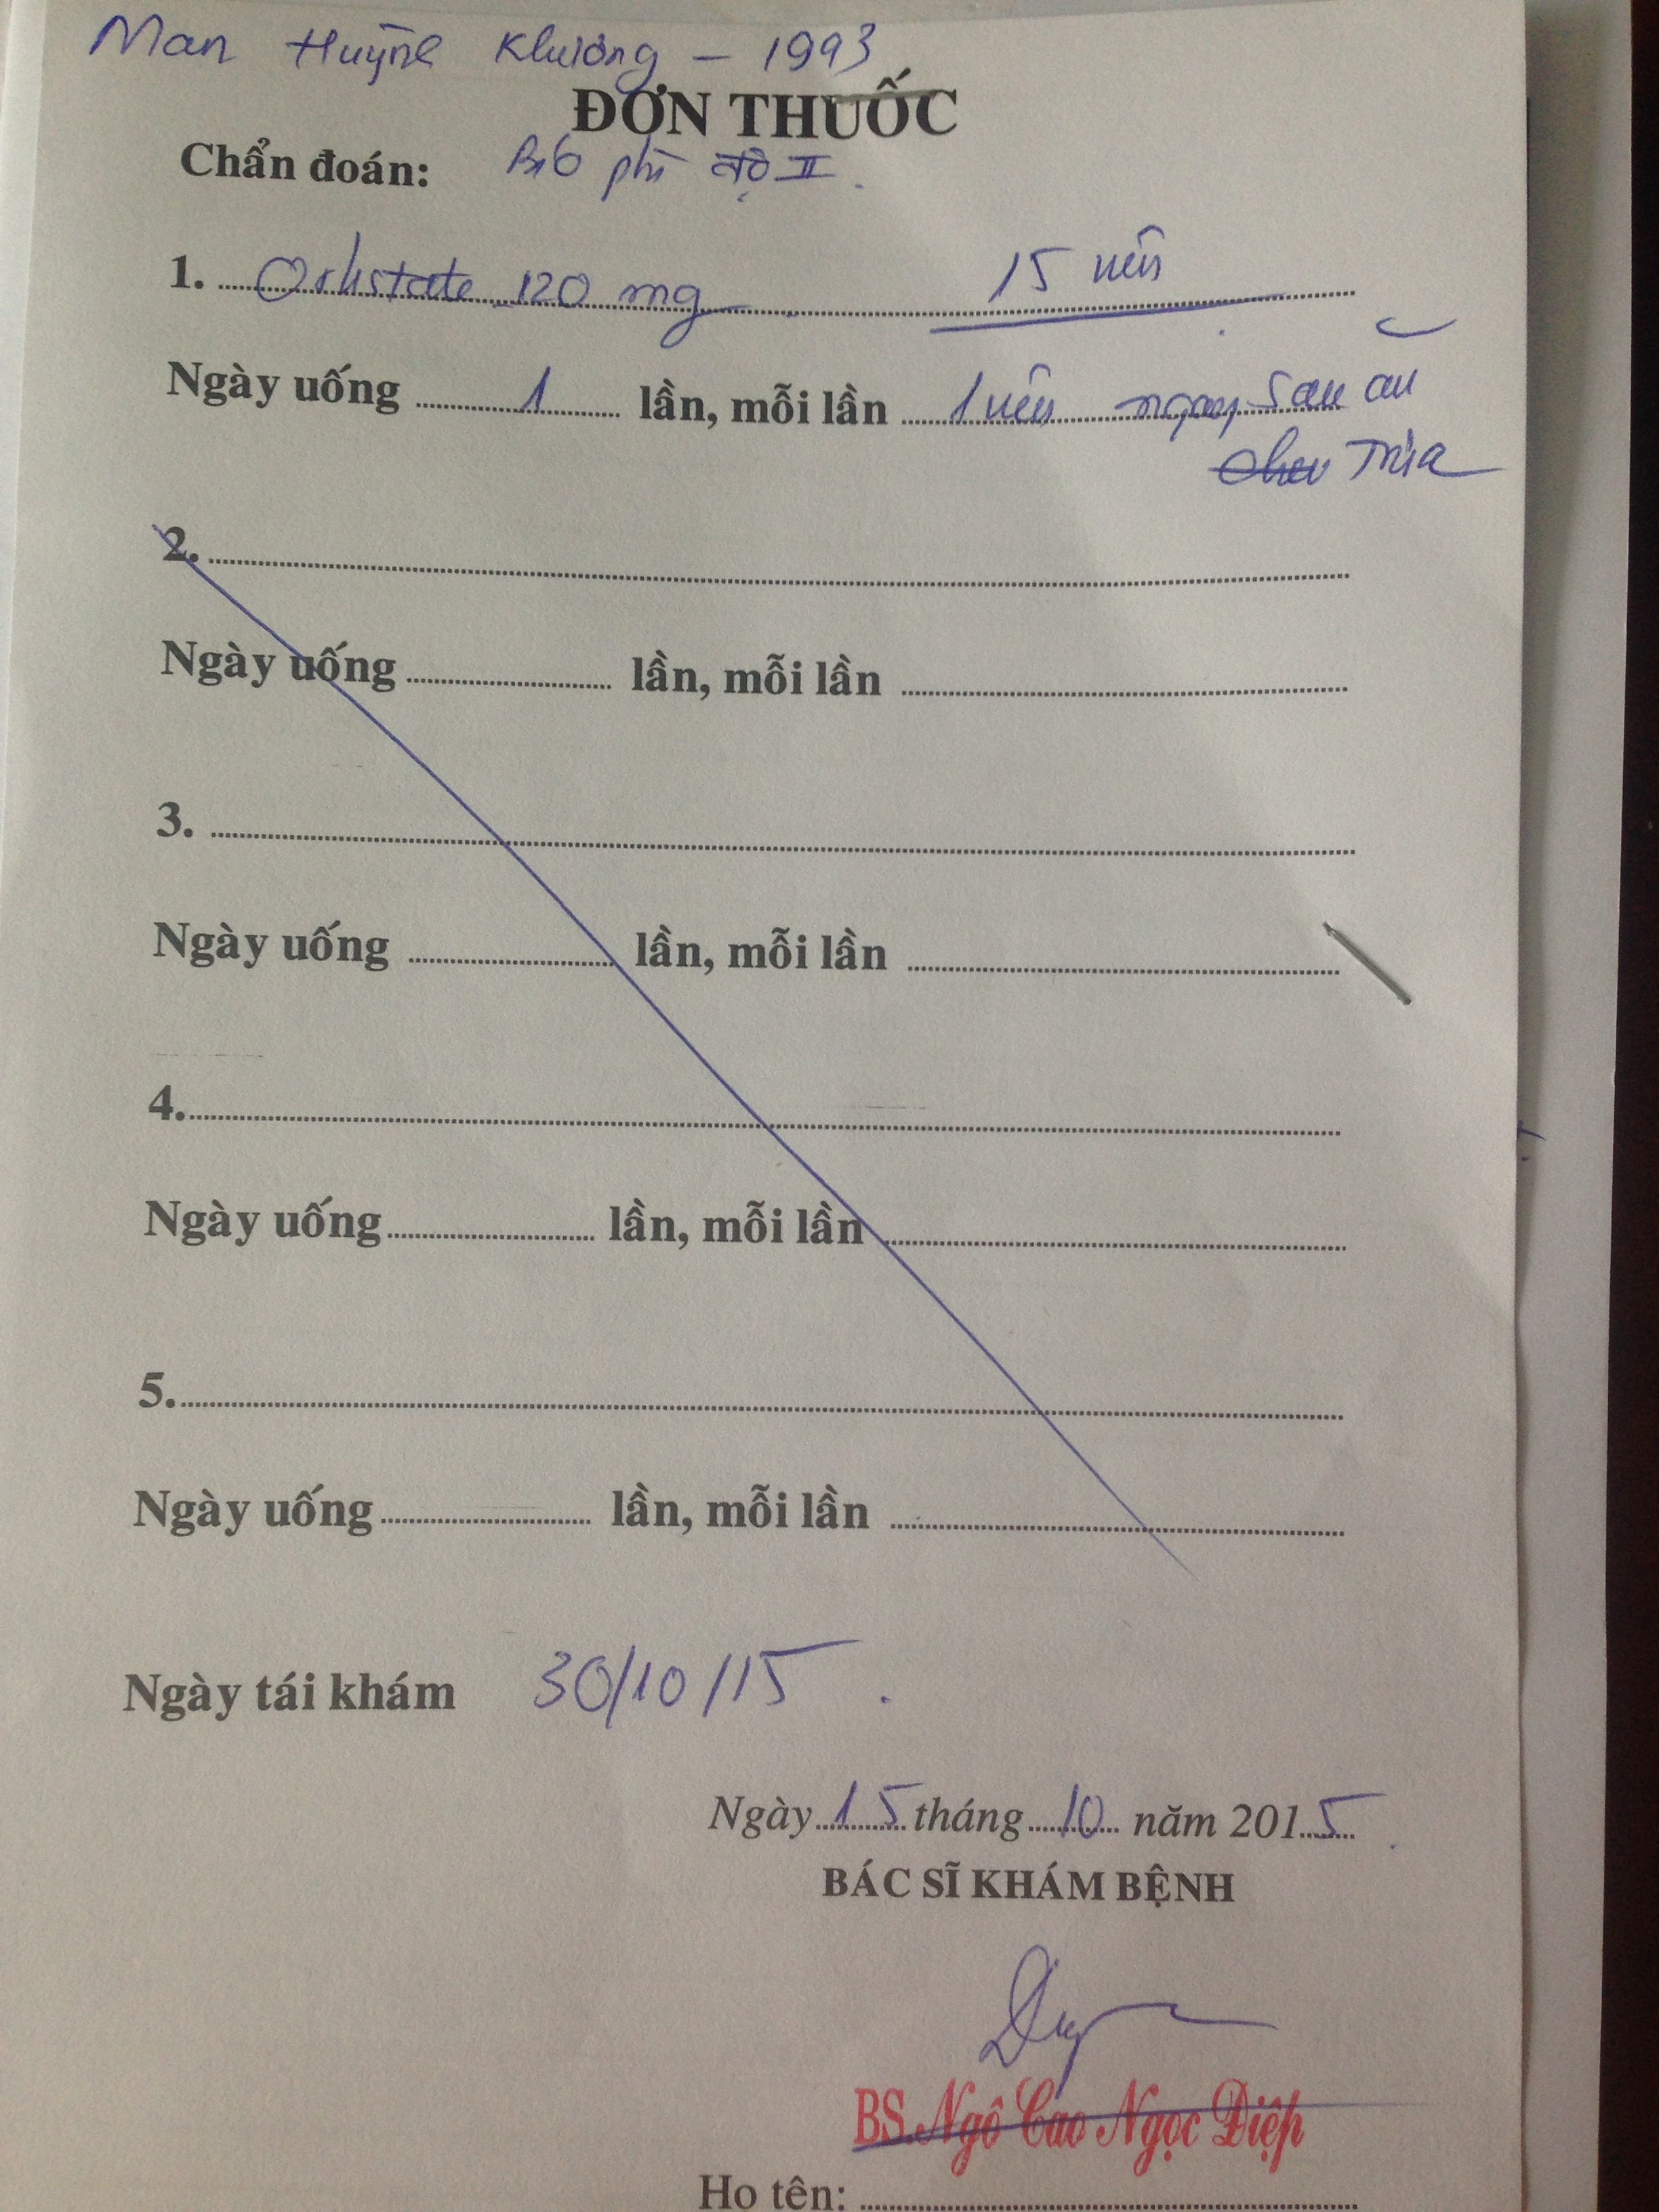 Man Huỳnh Khương – 1993
ĐƠN THUỐC
Chẩn đoán: Béo phì độ II.
1. Orlistate 120 mg 15 viên
Ngày uống 1 lần, mỗi lần 1 viên ngay sau ăn
trưa
2.
Ngày uống lần, mỗi lần
3.
Ngày uống lần, mỗi lần
4.
Ngày uống lần, mỗi lần
5.
Ngày uống lần, mỗi lần
Ngày tái khám 30/10/15.
Ngày 15 tháng 10 năm 2015.
BÁC SĨ KHÁM BỆNH
BS. Ngô Cao Ngọc Điệp
Họ tên: